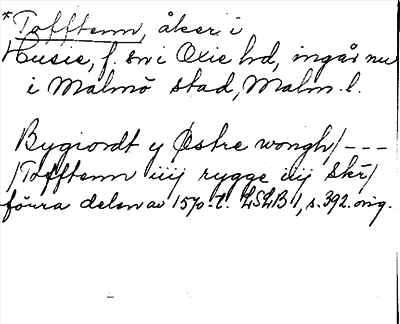 *Tofftenn, åker i
Husie, f. sn i Oxie hd, ingår nu
i Malmö stad, Malm. l.
Bygiordt y Østre wongh/ - - -
/Tofftenn iiij rygge iij skr/
förra delen av 1570-t. LSLB 1, s. 392. orig.